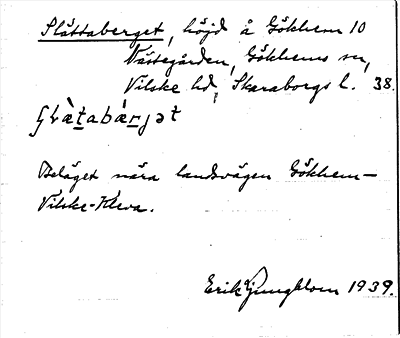 Slättaberget, höjd å Gökhem 10
Västegården, Gökhems sn,
Vilske hd, Skaraborgs l. 38.
Beläget nära landsvägen Gökhem-
Vilske-Kleva.
Erik Ljungblom 1939.